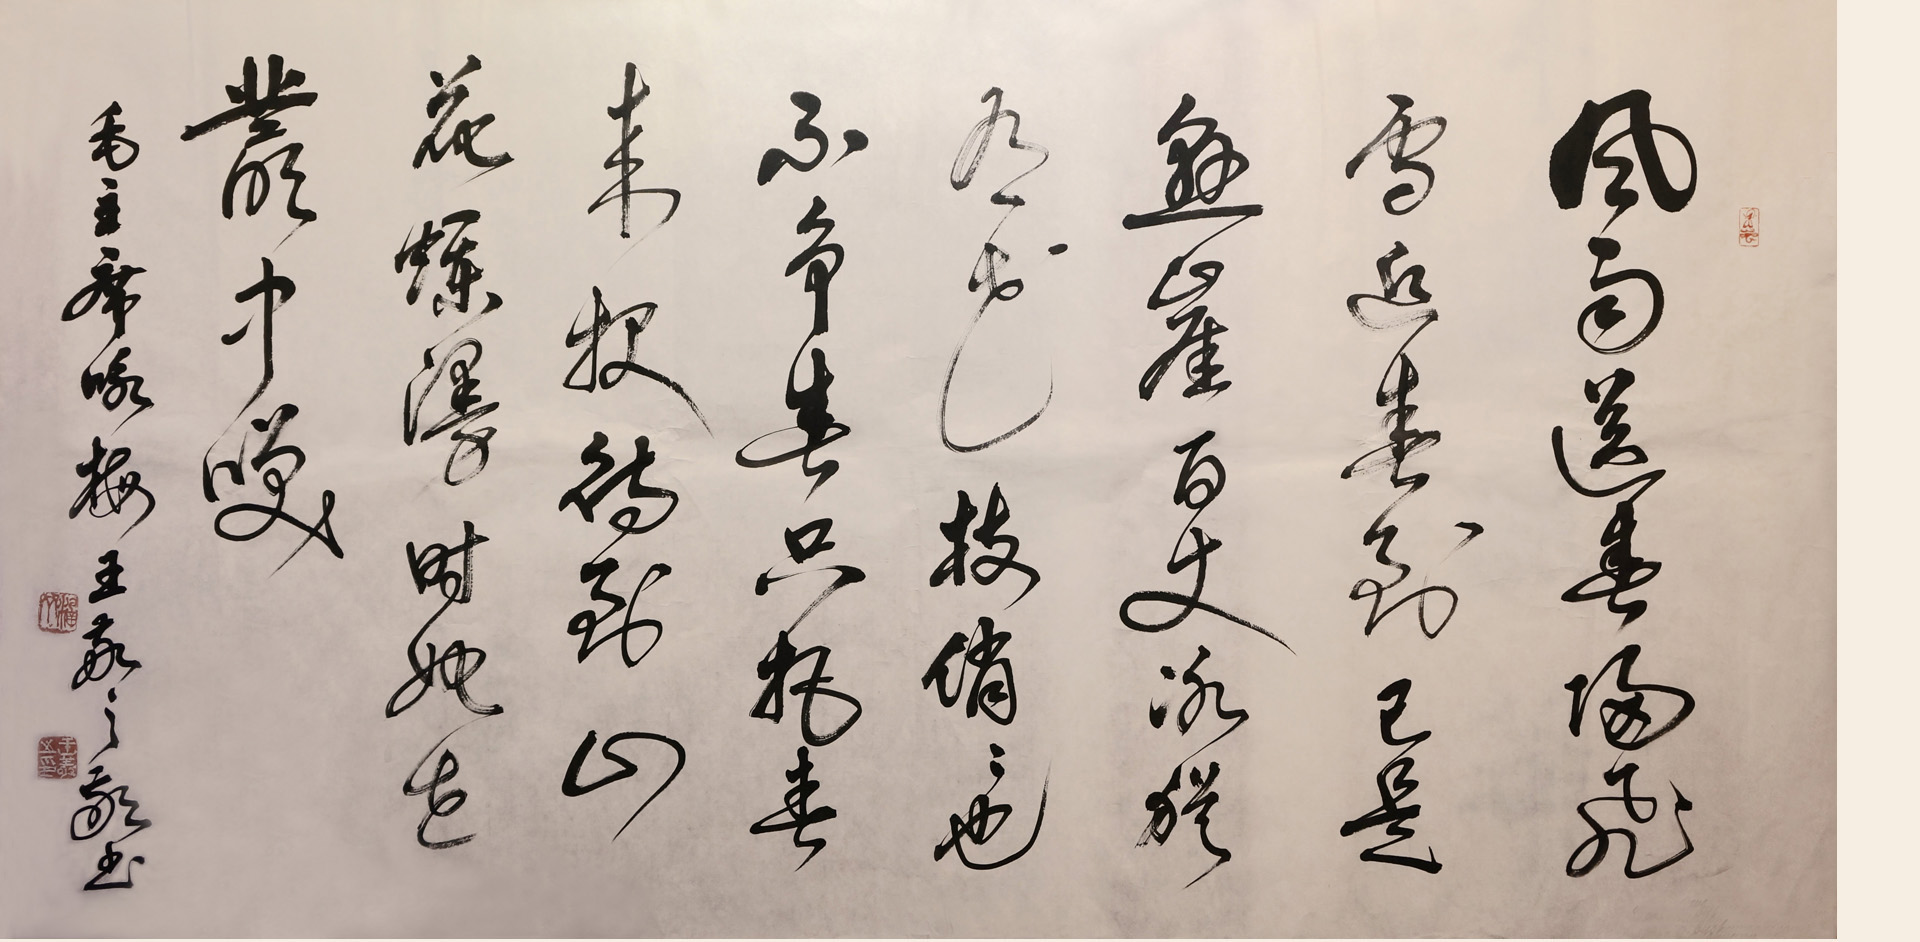 風雨送春歸飛
雪迎春到已是
懸崖百丈冰猶
有花枝俏々也
不争春只把春
来报待到山
花爛漫时她在
叢中笑
毛主席咏梅 王 之敬书